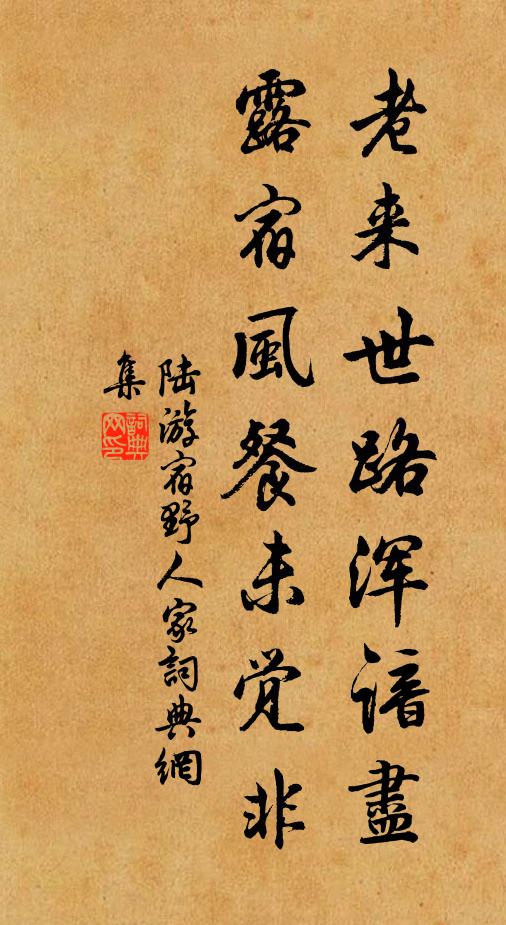 老来世路浑谙盡
露宿風餐未觉非
陆游宿野人家詞典網
集
詞典
网印